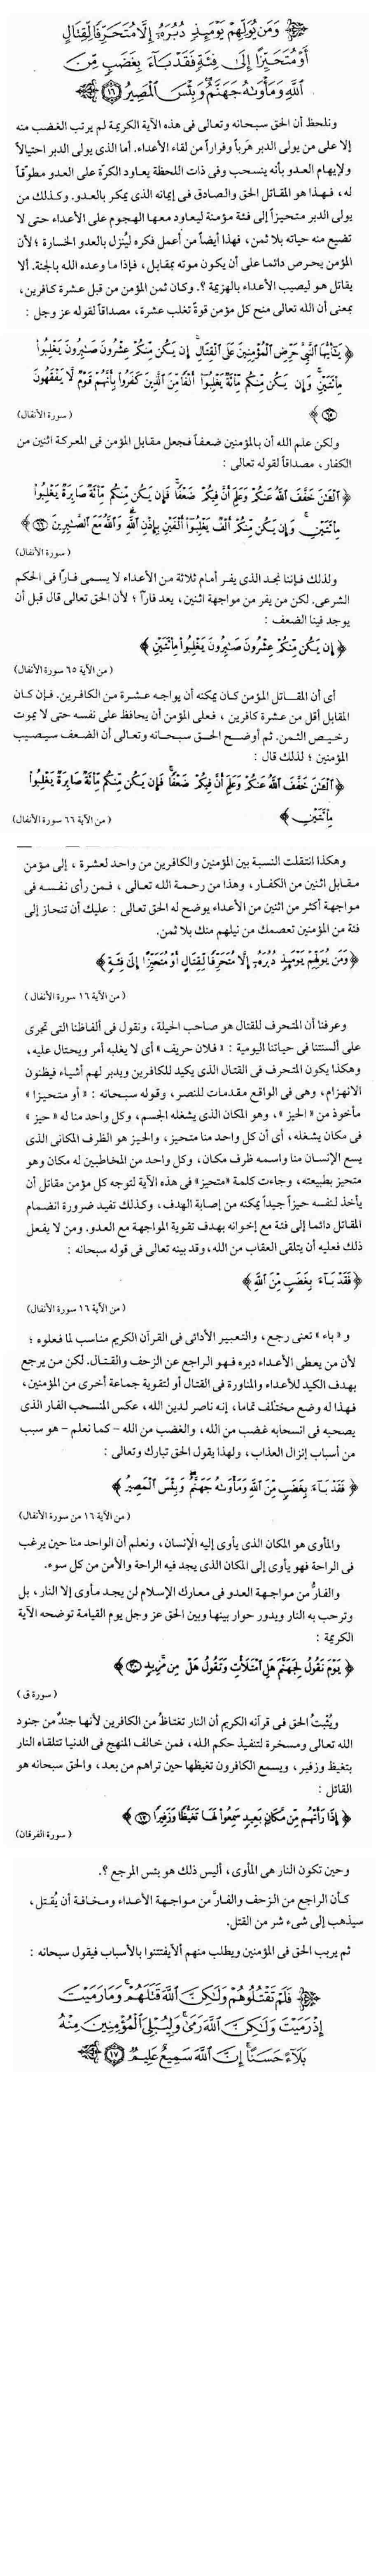 وَمَن يُوَلِّهِمْ يَوْمَئِذٍ دُبُرَهُ إِلَّا مُتَحَرِّفًا لِّقِتَالٍ
أَوْ مُتَحَيِّزًا إِلَىٰ فِئَةٍ فَقَدْ بَآءَ بِغَضَبٍ مِّنَ
اللَّهِ وَمَأْوَىٰهُ جَهَنَّمُ وَبِئْسَ الْمَصِيرُ ١٦
ونلحظ أن الحق سبحانه وتعالى فى هذه الآية الكريمة لم يرتب الغضب منه
إلا على من يولى الدبر هَرباً وفراراً من لقاء الأعداء. أما الذى يولى الدبر احتيالاً
ولإيهام العدو بأنه ينسحب وفى ذات اللحظة يعاود الكرّة على العدو مطوقاً
له، فهذا هو المقاتل الحق والصادق فى إيمانه الذى يمكر بالعدو. وكذلك من
يولى الدبر متحيزاً إلى فئة مؤمنة ليعاود معها الهجوم على الأعداء حتى لا
تضيع منه حياته بلا ثمن، فهذا أيضاً من أعمل فكره لينزل بالعدو الخسارة ؛ لأن
المؤمن يحرص دائما على أن يكون موته بمقابل، فإذا ما وعده الله بالجنة. ألا
يقاتل هو ليصيب الأعداء بالهزيمة ؟. وكان ثمن المؤمن من قبل عشرة كافرين،
بمعنى أن الله تعالى منح كل مؤمن قوةً تغلب عشرة، مصداقاً لقوله عز وجل :
﴿ يَٰٓأَيُّهَا النَّبِىُّ حَرِّضِ الْمُؤْمِنِينَ عَلَى الْقِتَالِ ۚ إِن يَكُن مِّنكُمْ عِشْرُونَ صَٰبِرُونَ يَغْلِبُوا۟
مِا۟ئَتَيْنِ ۚ وَإِن يَكُن مِّنكُم مِّا۟ئَةٌ يَغْلِبُوٓا۟ أَلْفًا مِّنَ الَّذِينَ كَفَرُوا۟ بِأَنَّهُمْ قَوْمٌ لَّا يَفْقَهُونَ
٦٥ ﴾ ( سورة الأنفال )
ولكن علم الله أن بالمؤمنين ضعفاً فجعل مقابل المؤمن فى المعركة اثنين من
الكفار، مصداقاً لقوله تعالى :
﴿ الْـَٰٔنَ خَفَّفَ اللَّهُ عَنكُمْ وَعَلِمَ أَنَّ فِيكُمْ ضَعْفًا ۚ فَإِن يَكُن مِّنكُم مِّا۟ئَةٌ صَابِرَةٌ يَغْلِبُوا۟
مِا۟ئَتَيْنِ ۚ وَإِن يَكُن مِّنكُمْ أَلْفٌ يَغْلِبُوٓا۟ أَلْفَيْنِ بِإِذْنِ اللَّهِ ۗ وَاللَّهُ مَعَ الصَّٰبِرِينَ ٦٦ ﴾
( سورة الأنفال )
ولذلك فإننا نجد الذى يفر أمام ثلاثة من الأعداء لا يسمى فارّا فى الحكم
الشرعى. لكن من يفر من مواجهة اثنين، يعد فاراً ؛ لأن الحق تعالى قال قبل أن
يوجد فينا الضعف :
﴿ إِن يَكُن مِّنكُمْ عِشْرُونَ صَٰبِرُونَ يَغْلِبُوا۟ مِا۟ئَتَيْنِ ﴾
( من الآية ٦٥ سورة الأنفال )
أى أن المقاتل المؤمن كان يمكنه أن يواجه عشرة من الكافرين. فإن كان
المقابل أقل من عشرة كافرين ، فعلى المؤمن أن يحافظ على نفسه حتى لا يموت
رخيص الثمن. ثم أوضح الحق سبحانه وتعالى أن الضعف سيصيب
المؤمنين ؛ لذلك قال :
﴿ الْـَٰٔنَ خَفَّفَ اللَّهُ عَنكُمْ وَعَلِمَ أَنَّ فِيكُمْ ضَعْفًا ۚ فَإِن يَكُن مِّنكُم مِّا۟ئَةٌ صَابِرَةٌ يَغْلِبُوا۟
مِا۟ئَتَيْنِ ﴾ ( من الآية ٦٦ سورة الأنفال )
وهكذا انتقلت النسبة بين المؤمنين والكافرين من واحد لعشرة ، إلى مؤمن
مقابل اثنين من الكفار، وهذا من رحمة الله تعالى ، فمن رأى نفسه فى
مواجهة أكثر من اثنين من الأعداء يوضح له الحق تعالى : عليك أن تنحاز إلى
فئة من المؤمنين تعصمك من نيلهم منك بلا ثمن.
﴿ وَمَن يُوَلِّهِمْ يَوْمَئِذٍ دُبُرَهُ إِلَّا مُتَحَرِّفًا لِّقِتَالٍ أَوْ مُتَحَيِّزًا إِلَىٰ فِئَةٍ ﴾
( من الآية ١٦ سورة الأنفال )
وعرفنا أن المتحرف للقتال هو صاحب الحيلة، ونقول فى ألفاظنا التى تجرى
على ألسنتنا فى حياتنا اليومية : « فلان حريف » أى لا يغلبه أمر ويحتال عليه،
وهكذا يكون المتحرف فى القتال الذى يكيد للكافرين ويدبر لهم أشياء فيظنون
الانهزام، وهى فى الواقع مقدمات للنصر، وقوله سبحانه : « أو متحيزا »
مأخوذ من « الحيز » ، وهو المكان الذى يشغله الجسم، وكل واحد منا له « حيز »
فى مكان يشغله، أى أن كل واحد منا متحيز، والحيز هو الظرف المكانى الذى
يسع الإنسان منا واسمه ظرف مكان، وكل واحد من المخاطبين له مكان وهو
متحيز بطبيعته، وجاءت كلمة «متحيز» فى هذه الآية لتوجه كل مؤمن مقاتل أن
يأخذ لنفسه حيزاً جيداً يمكنه من إصابة الهدف، وكذلك تفيد ضرورة انضمام
المقاتل دائما إلى فئة مع إخوانه بهدف تقوية المواجهة مع العدو. ومن لا يفعل
ذلك فعليه أن يتلقى العقاب من الله، وقد بينه تعالى فى قوله سبحانه :
﴿ فَقَدْ بَآءَ بِغَضَبٍ مِّنَ اللَّهِ ﴾
( من الآية ١٦ سورة الأنفال )
و « باء » تعنى رجع، والتعبير الأدائى فى القرآن الكريم مناسب لما فعلوه ؛
لأن من يعطى الأعداء دبره فهو الراجع عن الزحف والقتال. لكن من يرجع
بهدف الكيد للأعداء والمناورة فى القتال أو لتقوية جماعة أخرى من المؤمنين،
فهذا له وضع مختلف تماما، إنه ناصر لدين الله، عكس المنسحب الفار الذى
يصحبه فى انسحابه غضب من الله، والغضب من الله - كما نعلم - هو سبب
من أسباب إنزال العذاب، ولهذا يقول الحق تبارك وتعالى :
﴿ فَقَدْ بَآءَ بِغَضَبٍ مِّنَ اللَّهِ وَمَأْوَىٰهُ جَهَنَّمُ ۖ وَبِئْسَ الْمَصِيرُ ﴾
( من الآية ١٦ من سورة الأنفال )
والمأوى هو المكان الذى يأوى إليه الإنسان، ونعلم أن الواحد منا حين يرغب
فى الراحة فهو يأوى إلى المكان الذى يجد فيه الراحة والأمن من كل سوء.
والفارُّ من مواجهة العدو فى معارك الإسلام لن يجد مأوى إلا النار، بل
وترحب به النار ويدور حوار بينها وبين الحق عز وجل يوم القيامة توضحه الآية
الكريمة :
﴿ يَوْمَ نَقُولُ لِجَهَنَّمَ هَلِ امْتَلَأْتِ وَتَقُولُ هَلْ مِن مَّزِيدٍ ٣٠ ﴾
( سورة ق )
ويُثبتُ الحق فى قرآنه الكريم أن النار تغتاظُ من الكافرين لأنها جندٌ من جنود
الله تعالى ومسخرة لتنفيذ حكم الله، فمن خالف المنهج فى الدنيا تتلقاه النار
بتغيظ وزفير، ويسمع الكافرون تغيظها حين تراهم من بعد، والحق سبحانه هو
القائل :
﴿ إِذَا رَأَتْهُم مِّن مَّكَانٍ بَعِيدٍ سَمِعُوا۟ لَهَا تَغَيُّظًا وَزَفِيرًا ١٢ ﴾
( سورة الفرقان )
وحين تكون النار هى المأوى، أليس ذلك هو بئس المرجع ؟.
كأن الراجع من الزحف والفارَّ من مواجهة الأعداء ومخافة أن يُقتل،
سيذهب إلى شىء شر من القتل.
ثم يربب الحق فى المؤمنين ويطلب منهم ألا يفتتنوا بالأسباب فيقول سبحانه :
فَلَمْ تَقْتُلُوهُمْ وَلَٰكِنَّ اللَّهَ قَتَلَهُمْ ۚ وَمَا رَمَيْتَ
إِذْ رَمَيْتَ وَلَٰكِنَّ اللَّهَ رَمَىٰ ۚ وَلِيُبْلِىَ الْمُؤْمِنِينَ مِنْهُ
بَلَآءً حَسَنًا ۚ إِنَّ اللَّهَ سَمِيعٌ عَلِيمٌ ١٧